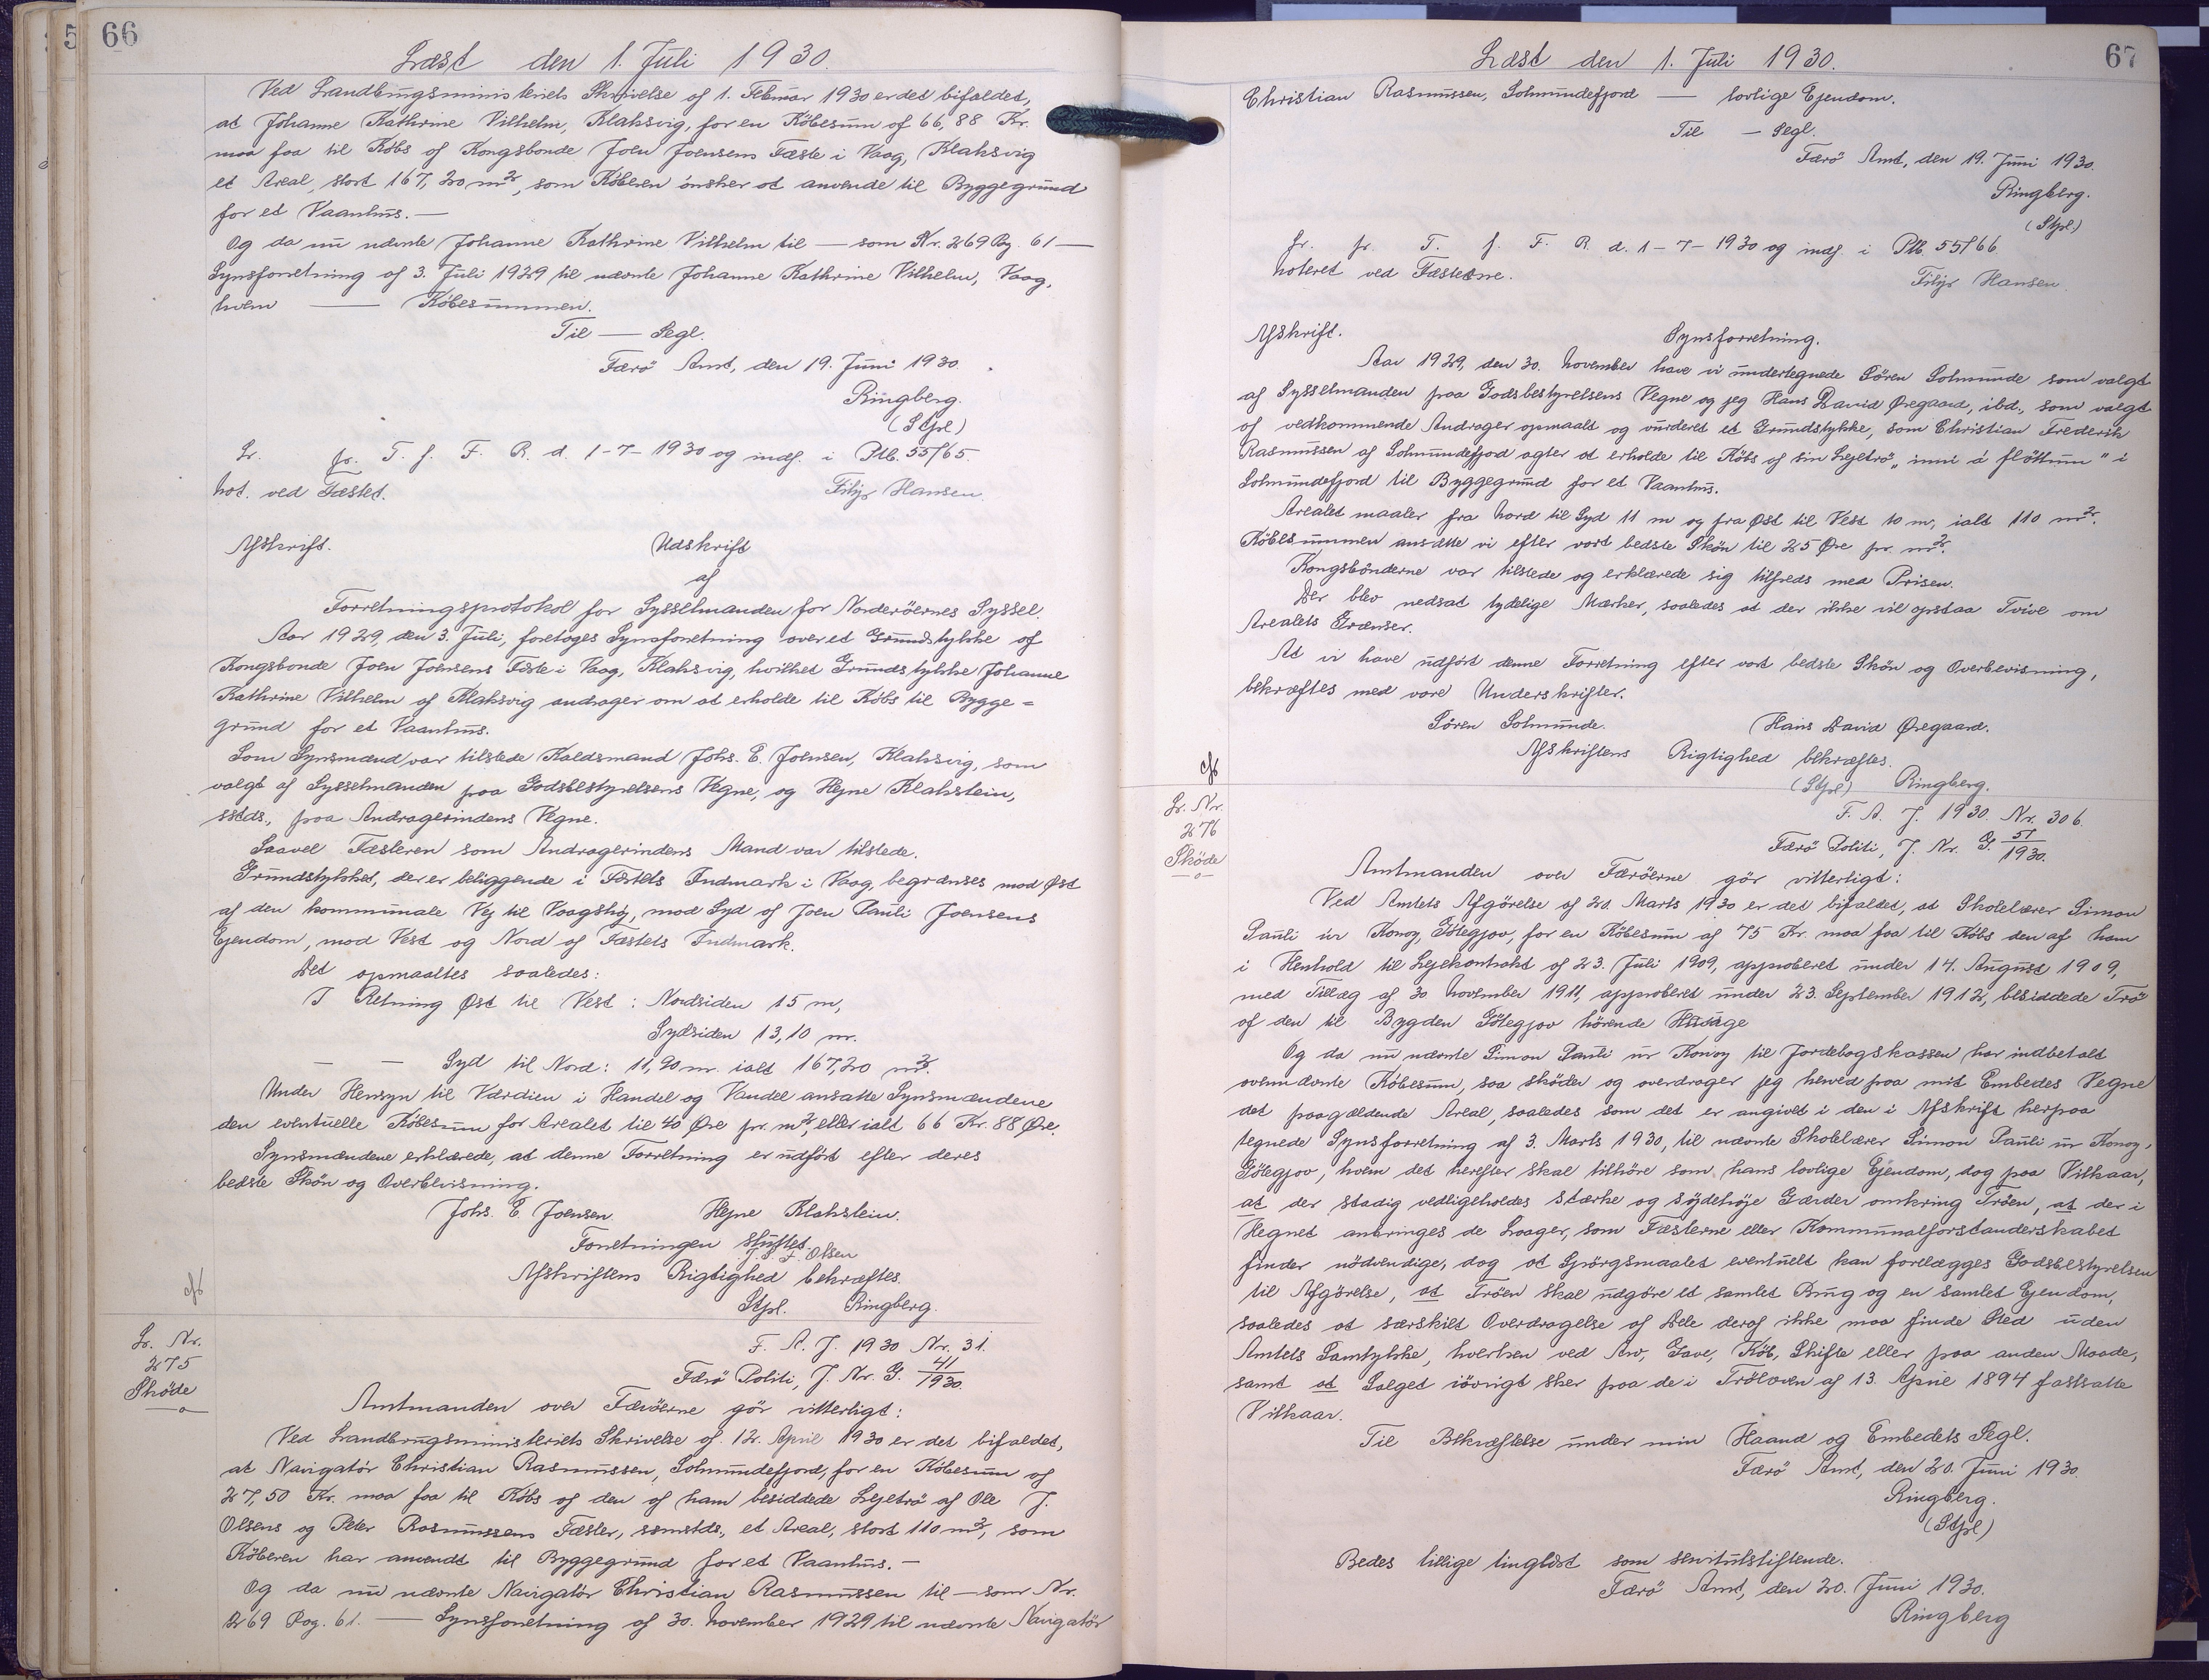 66
Læst den 1. Juli 1930.
Ved Landbrugsministeriets Skrivelse af 1. Februar 1930 er det bifaldet,
at Johanne Kathrine Vilhelm, Klaksvig, for en Köbesum af 66,88 Kr.
maa faa til Köbs af Kongsbonde Joen Joensens Fæste i Vaag, Klaksvig
et Areal, stort 167,20 m², som Köberen önsker at anvende til Byggegrund
for et Vaanhus. —
Og da nu nævnte Johanne Kathrine Vilhelm til — som Nr. 269 Pg. 61 —
Synsforretning af 3. Juli 1929 til nævnte Johanne Kathrine Vilhelm, Vaag,
hvem — Köbesummen.
Til — Segl.
Færö Amt, den 19. Juni 1930.
Ringberg.
(Stpl)
Lr. fr. T. f. F. R. d. 1-7-1930 og indf. i Ptb. 55/65.
Not. ved Fæstet.
Filip Hansen.
Afskrift.
Udskrift
af
Forretningsprotokol for Sysselmanden for Norderöernes Syssel.
Aar 1929, den 3. Juli, foretoges Synsforretning over et Grundstykke af
Kongsbonde Joen Joensens Fæste i Vaag, Klaksvig, hvilket Grundstykke Johanne
Kathrine Vilhelm af Klaksvig andrager om at erholde til Köbs til Bygge=
grund for et Vaanhus.
Som Synsmænd var tilstede Kaldsmand Johs. E. Joensen, Klaksvig, som
valgt af Sysselmanden paa Godsbestyrelsens Vegne, og Hejne Klakstein,
sstds., paa Andragerindens Vegne.
Saavel Fæsteren som Andragerindens Mand var tilstede.
Grundstykket, der er beliggende i Fæstets Indmark i Vaag, begrænses mod Øst
af den kommunale Vej til Vaagshöj, mod Syd af Joen Pauli Joensens
Ejendom, mod Vest og Nord af Fæstets Indmark.
Det opmaaltes saaledes:
I Retning Øst til Vest: Nordsiden 15 m,
Sydsiden 13,10 m.
— — Syd til Nord: 11,90 m. ialt 167,20 m².
Under Hensyn til Værdien i Handel og Vandel ansatte Synsmændene
den eventuelle Köbesum for Arealet til 40 Øre pr. m², eller ialt 66 Kr. 88 Øre.
Synsmændene erklærede, at denne Forretning er udfört efter deres
bedste Skön og Overbevisning.
Johs. E Joensen Hejne Klakstein.
Forretningen sluttet.
J. S. F. Olsen
Afskriftens Rigtighed bekræftes.
Stpl. Ringberg.
Lr. Nr.
275
Sköde
F. A. J. 1930 Nr. 31.
Færö Politi, J. Nr. G. 41/1930.
Amtmanden over Færöerne gör vitterligt:
Ved Landbrugsministeriets Skrivelse af 12. April 1930 er det bifaldet,
at Navigatör Christian Rasmussen, Solmundefjord, for en Köbesum af
27,50 Kr. maa faa til Köbs af den af ham besiddede Lejetrö af Ole J.
Olsens og Peter Rasmussens Fæster, samstds., et Areal, stort 110 m², som
Köberen har anvendt til Byggegrund for et Vaanhus. —
Og da nu nævnte Navigatör Christian Rasmussen til — som Nr.
269 Pag. 61. — Synsforretning af 30. November 1929 til nævnte Navigatör
67
Læst den 1. Juli 1930.
Christian Rasmussen, Solmundefjord — lovlige Ejendom.
Til — Segl.
Færö Amt, den 19. Juni 1930.
Ringberg.
(Stpl)
Lr. fr. T. f. F. R. d. 1-7-1930 og indf. i Ptb. 55/66
Noteret ved Fæsterne.
Filip Hansen.
Afskrift.
Synsforretning.
Aar 1929, den 30. November have vi undertegnede Sören Solmunde som valgt
af Sysselmanden paa Godsbestyrelsens Vegne og jeg Hans David Øregaard, ibd., som valgt
af vedkommende Andrager opmaalt og vurderet et Grundstykke, som Christian Frederik
Rasmussen af Solmundefjord agter at erholde til Köbs af sin Lejetrö „inni á fløttum" i
Solmundefjord til Byggegrund for et Vaanhus.
Arealet maaler fra Nord til Syd 11 m og fra Øst til Vest 10 m, ialt 110 m².
Köbesummen ansætte vi efter vort bedste Skön til 25 Øre pr. m².
Kongsbönderne var tilstede og erklærede sig tilfreds med Prisen.
Der blev nedsat tydelige Mærker, saaledes at der ikke vil opstaa Tvivl om
Arealets Grænser.
At vi have udfört denne Forretning efter vort bedste Skön og Overbevisning,
bekræftes med vore Underskrifter.
Sören Solmunde. Hans David Øregaard.
Afskriftens Rigtighed bekræftes.
(Stpl) Ringberg.
Lr. Nr.
276
Sköde
F. A. J. 1930. Nr. 306.
Færö Politi, J. Nr. G. 51/1930.
Amtmanden over Færöerne gör vitterligt:
Ved Amtets Afgörelse af 20. Marts 1930 er det bifaldet, at Skolelærer Simon
Pauli úr Konoy, Götegjov, for en Köbesum af 75 Kr. maa faa til Köbs den af ham
i Henhold til Lejekontrakt af 23. Juli 1909, approberet under 14. August 1909,
med Tillæg af 30. November 1911, approberet under 23. September 1912, besiddede Trö
af den til Bygden Götegjov hörende Husage
Og da nu nævnte Simon Pauli úr Konoy til Jordebogskassen har indbetalt
ovennævnte Köbesum, saa sköder og overdrager jeg herved paa mit Embedes Vegne
det paagældende Areal, saaledes som det er angivet i den i Afskrift herpaa
tegnede Synsforretning af 3. Marts 1930, til nævnte Skolelærer Simon Pauli úr Konoy,
Götegjov, hvem det herefter skal tilhöre som hans lovlige Ejendom, dog paa Vilkaar,
at der stadig vedligeholdes stærke og sydehöje Gærder omkring Tröen, at der i
Hegnet anbringes de Laager, som Fæsterne eller Kommunalforstanderskabet
finder nödvendige, dog at Spörgsmaalet eventuelt kan forelægges Godsbestyrelsen
til Afgörelse, at Tröen skal udgöre et samlet Brug og en samlet Ejendom,
saaledes at særskilt Overdragelse af Dele deraf ikke maa finde Sted uden
Amtets Samtykke, hverken ved Arv, Gave, Köb, Skifte eller paa anden Maade,
samt at Salget iövrigt sker paa de i Tröloven af 13. April 1894 fastsatte
Vilkaar.
Til Bekræftelse under min Haand og Embedets Segl.
Færö Amt, den 20. Juni 1930.
Ringberg.
(Stpl)
Bedes tillige tinglæst som servitutstiftende.
Færö Amt, den 20. Juni 1930.
Ringberg